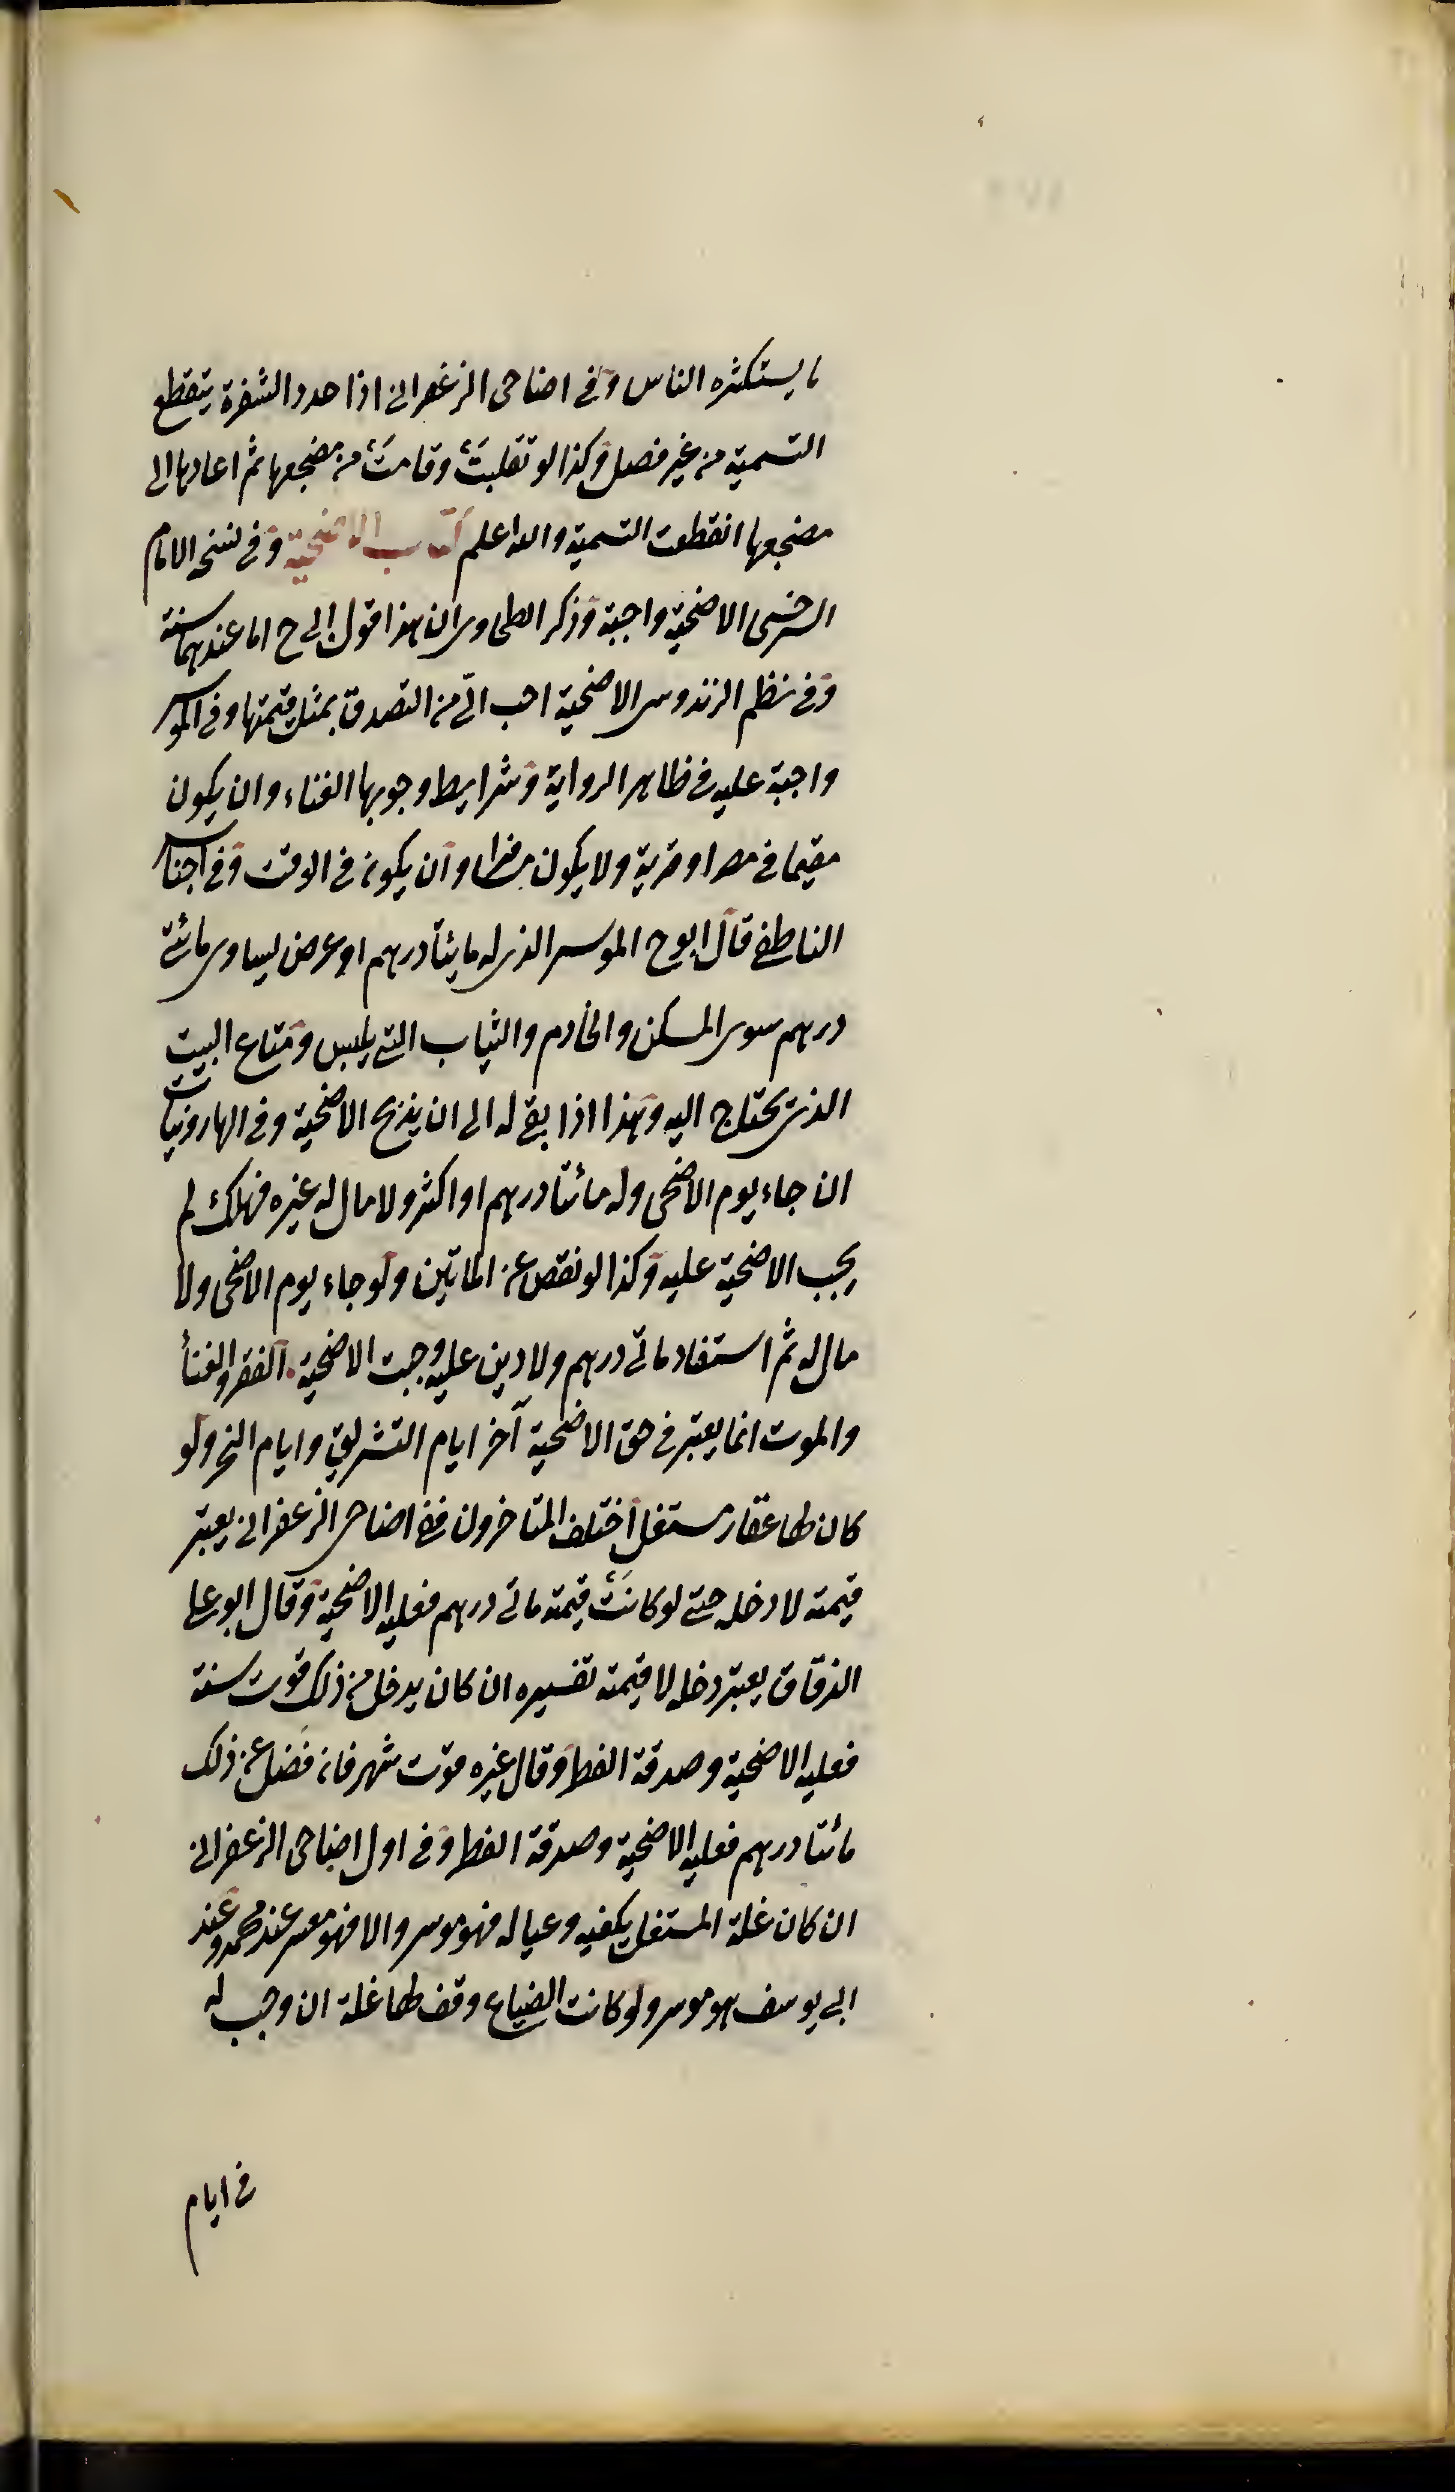 ما يستكثره الناس وفي اضاحى الزعفرانى اذا حدد الشفرة ينقطع
التسمية من غير فصل وكذا لو تقلبت وقامت من مضجعها ثم اعادها الى
مضجعها انقطعت التسمية والله اعلم كتاب الاضحية وفى نسخ الامام
السرخسى الاضحية واجبة وذكر الطحاوى ان هذا قول ابى ح اما عندهما سنة
وفى نظم الزندوسى الاضحية احب الىّ من التصدق بمثل قيمتها وفى الموسر
واجبة عليه فى ظاهر الرواية وشرايط وجوبها الغناء وان يكون
مقيما فى مصر او قرية ولا يكون مسافرا وان يكون فى الوقت وفى اجناس
الناطفى قال ابو ح الموسر الذى له مايتا درهم او عرض يساوى مائتى
درهم سوى المسكن والخادم والثياب التى يلبس ومتاع البيت
الذى يحتاج اليه وهذا اذا بقى له الى ان يذبح الاضحية وفى الهارونيات
ان جاء يوم الاضحى وله مائتا درهم او اكثر ولا مال له غيره فهلك لم
يجب الاضحية عليه وكذا لو نقص عن المايتين ولو جاء يوم الاضحى ولا
مال له ثم استفاد مائتى درهم ولا دين عليه وجبت الاضحية الفقر والغناء
والموت انما يعتبر فى حق الاضحية آخر ايام التشريق وايام النحر ولو
كان لها عقار مستغل اختلف المتاخرون ففى اضاحى الزعفرانى يعتبر
قيمته لا دخله حتى لو كانت قيمته مائتى درهم فعليه الاضحية وقال ابو على
الدقاق يعتبر دخله لا قيمته تفسيره ان كان يدخل من ذلك قوت سنة
فعليه الاضحية وصدقة الفطر وقال غيره قوت شهر فان فضل عن ذلك
مائتا درهم فعليه الاضحية وصدقة الفطر وفى اول اضاحى الزعفرانى
ان كان غلة المستغل يكفيه وعياله فهو موسر والا فهو معسر عند محمد وعند
ابى يوسف هو موسر ولو كانت الضياع وقف لها غلة ان وجب له
فى ايام